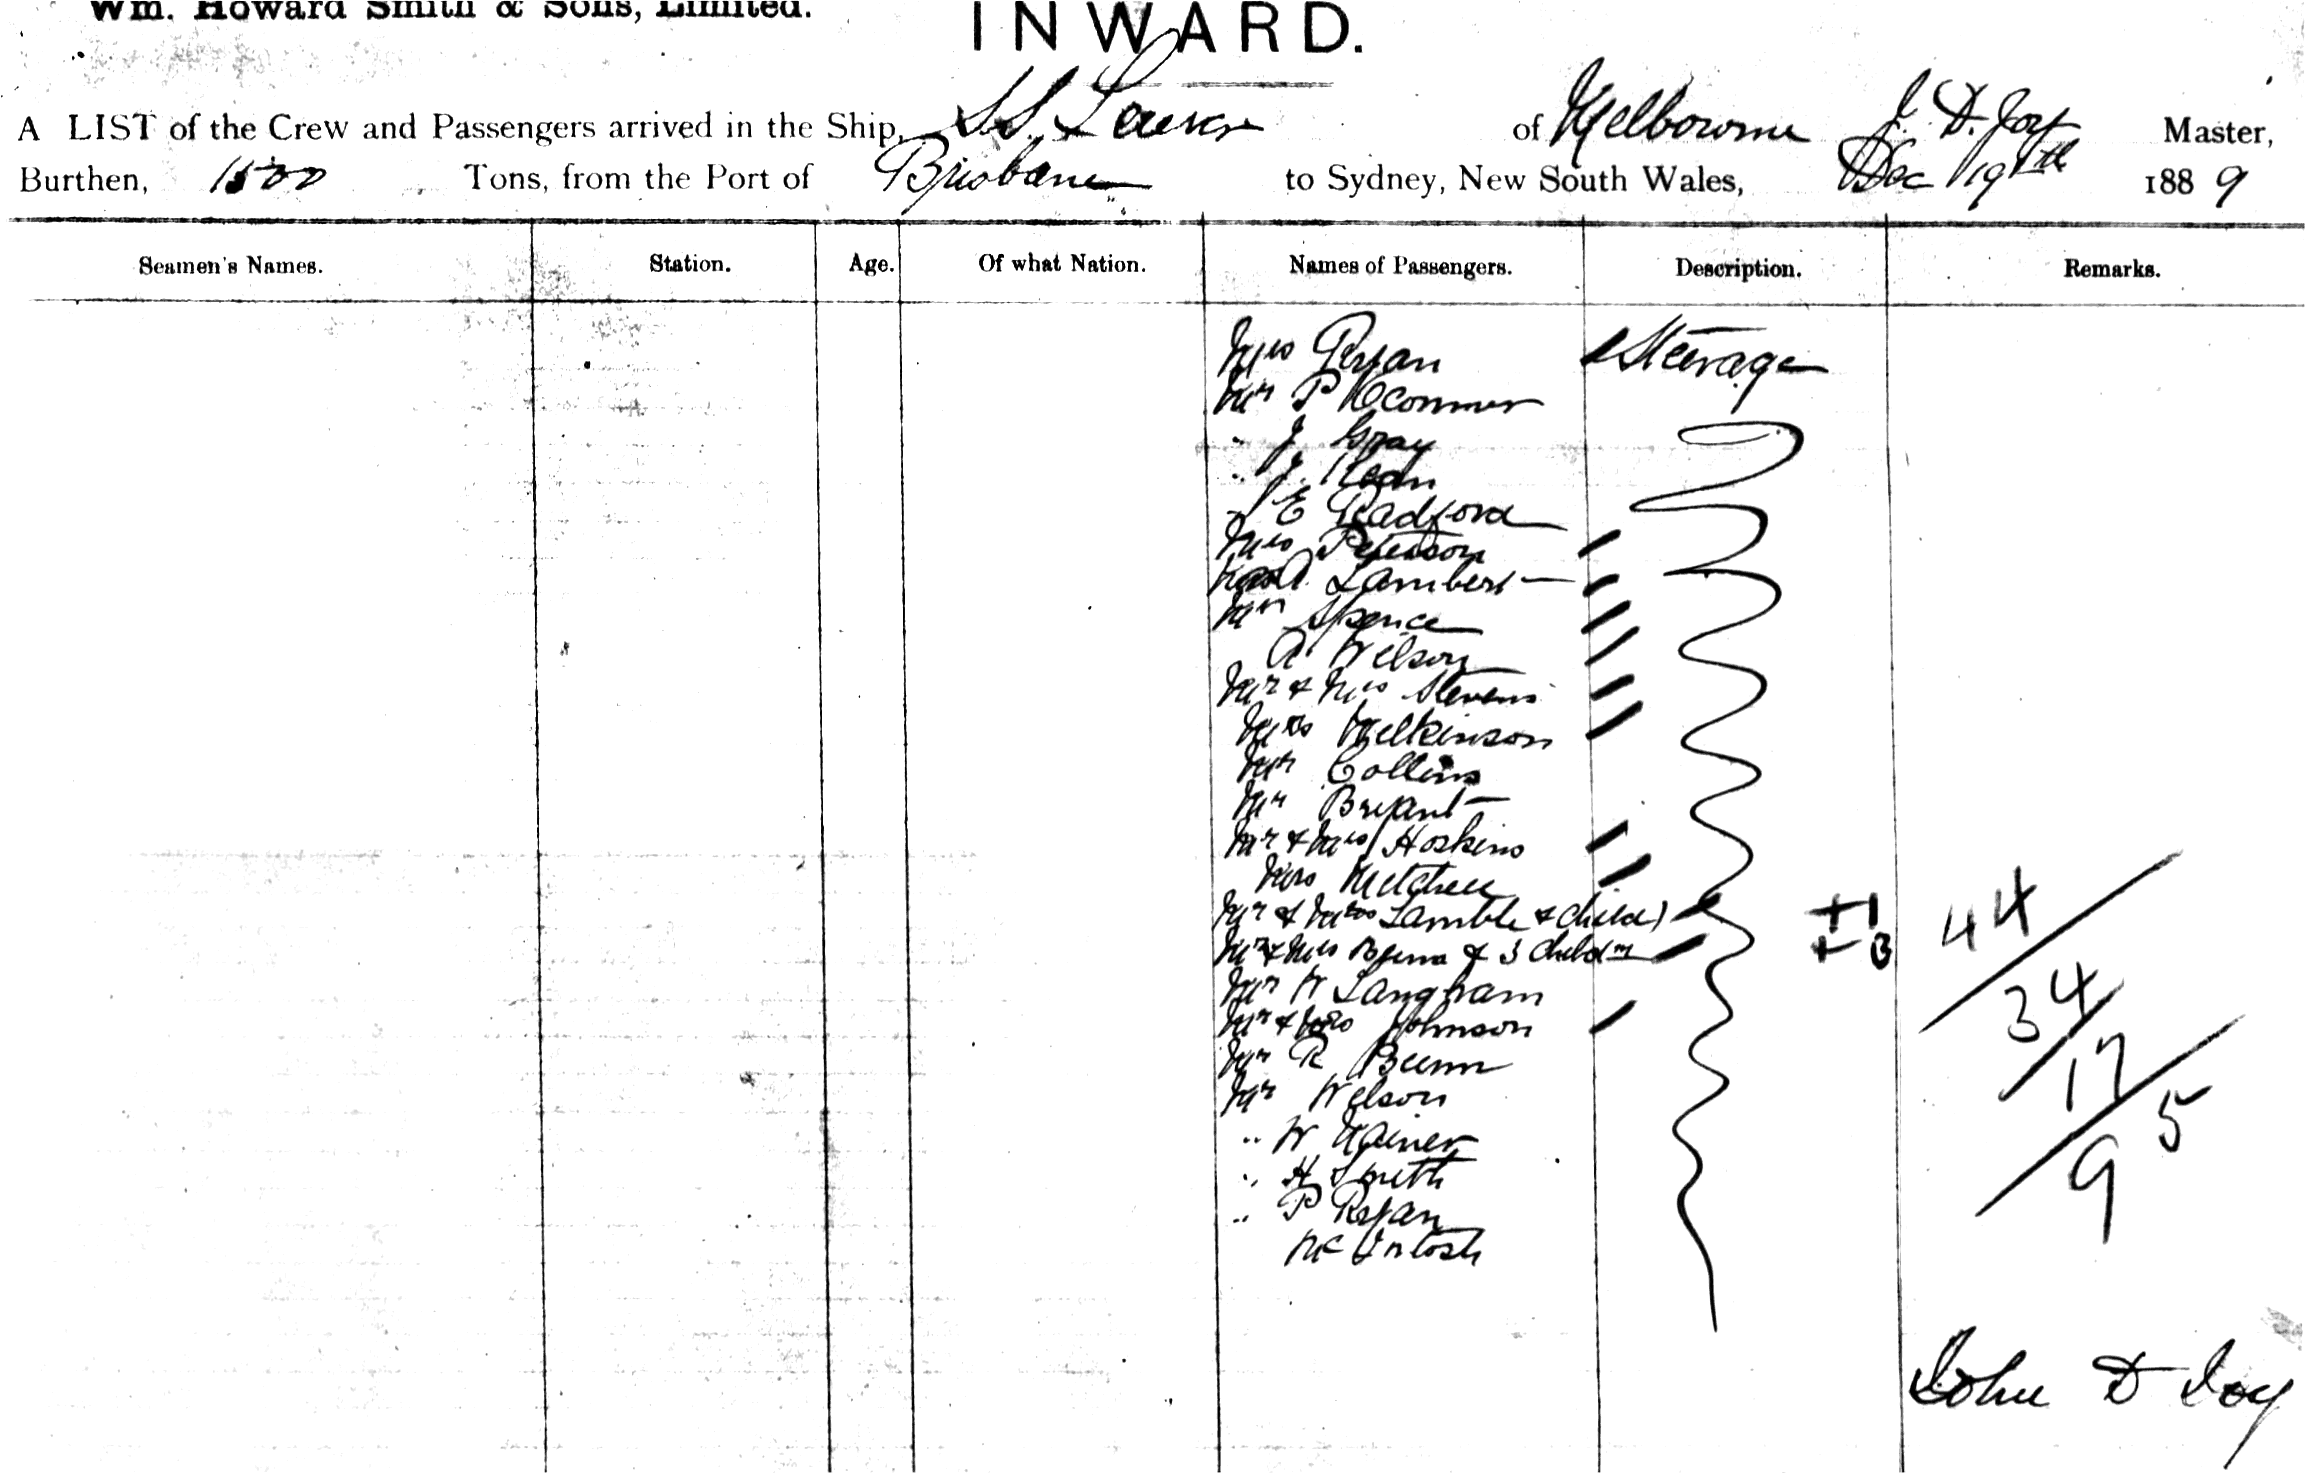 Wm. Howard Smith & Sons, Limited.
INWARD.
A LIST of the Crew and Passengers arrived in the Ship, S.S. of Melbourne J. D. Joy Master,
Burthen, 1500 Tons, from the Port of Brisbane to Sydney, New South Wales, Dec 19th 1889
Seamen's Names. Station. Age. Of what Nation. Names of Passengers. Description. Remarks.
Mrs Ryan Steerage
Mr P OConnor
" J Gray
" J. Kean
" E Radford
Mrs Peterson
A. Lambert
Mr Spence
A Wilson
Mr & Mrs Stevens
Mrs Wilkinson
Mr Collins
Mr Bryant
Mr & Mrs Hoskins
Mrs Mitchell
Mr & Mrs Lamble & child + 1 44
Mr & Mrs & 3 Childrn + 3
Mr W Langham 34
Mr & Mrs Johnson
Mr R 17
Mr Wilson 5
" W 9
" H Smith
" P Ryan
McIntosh
John D Joy